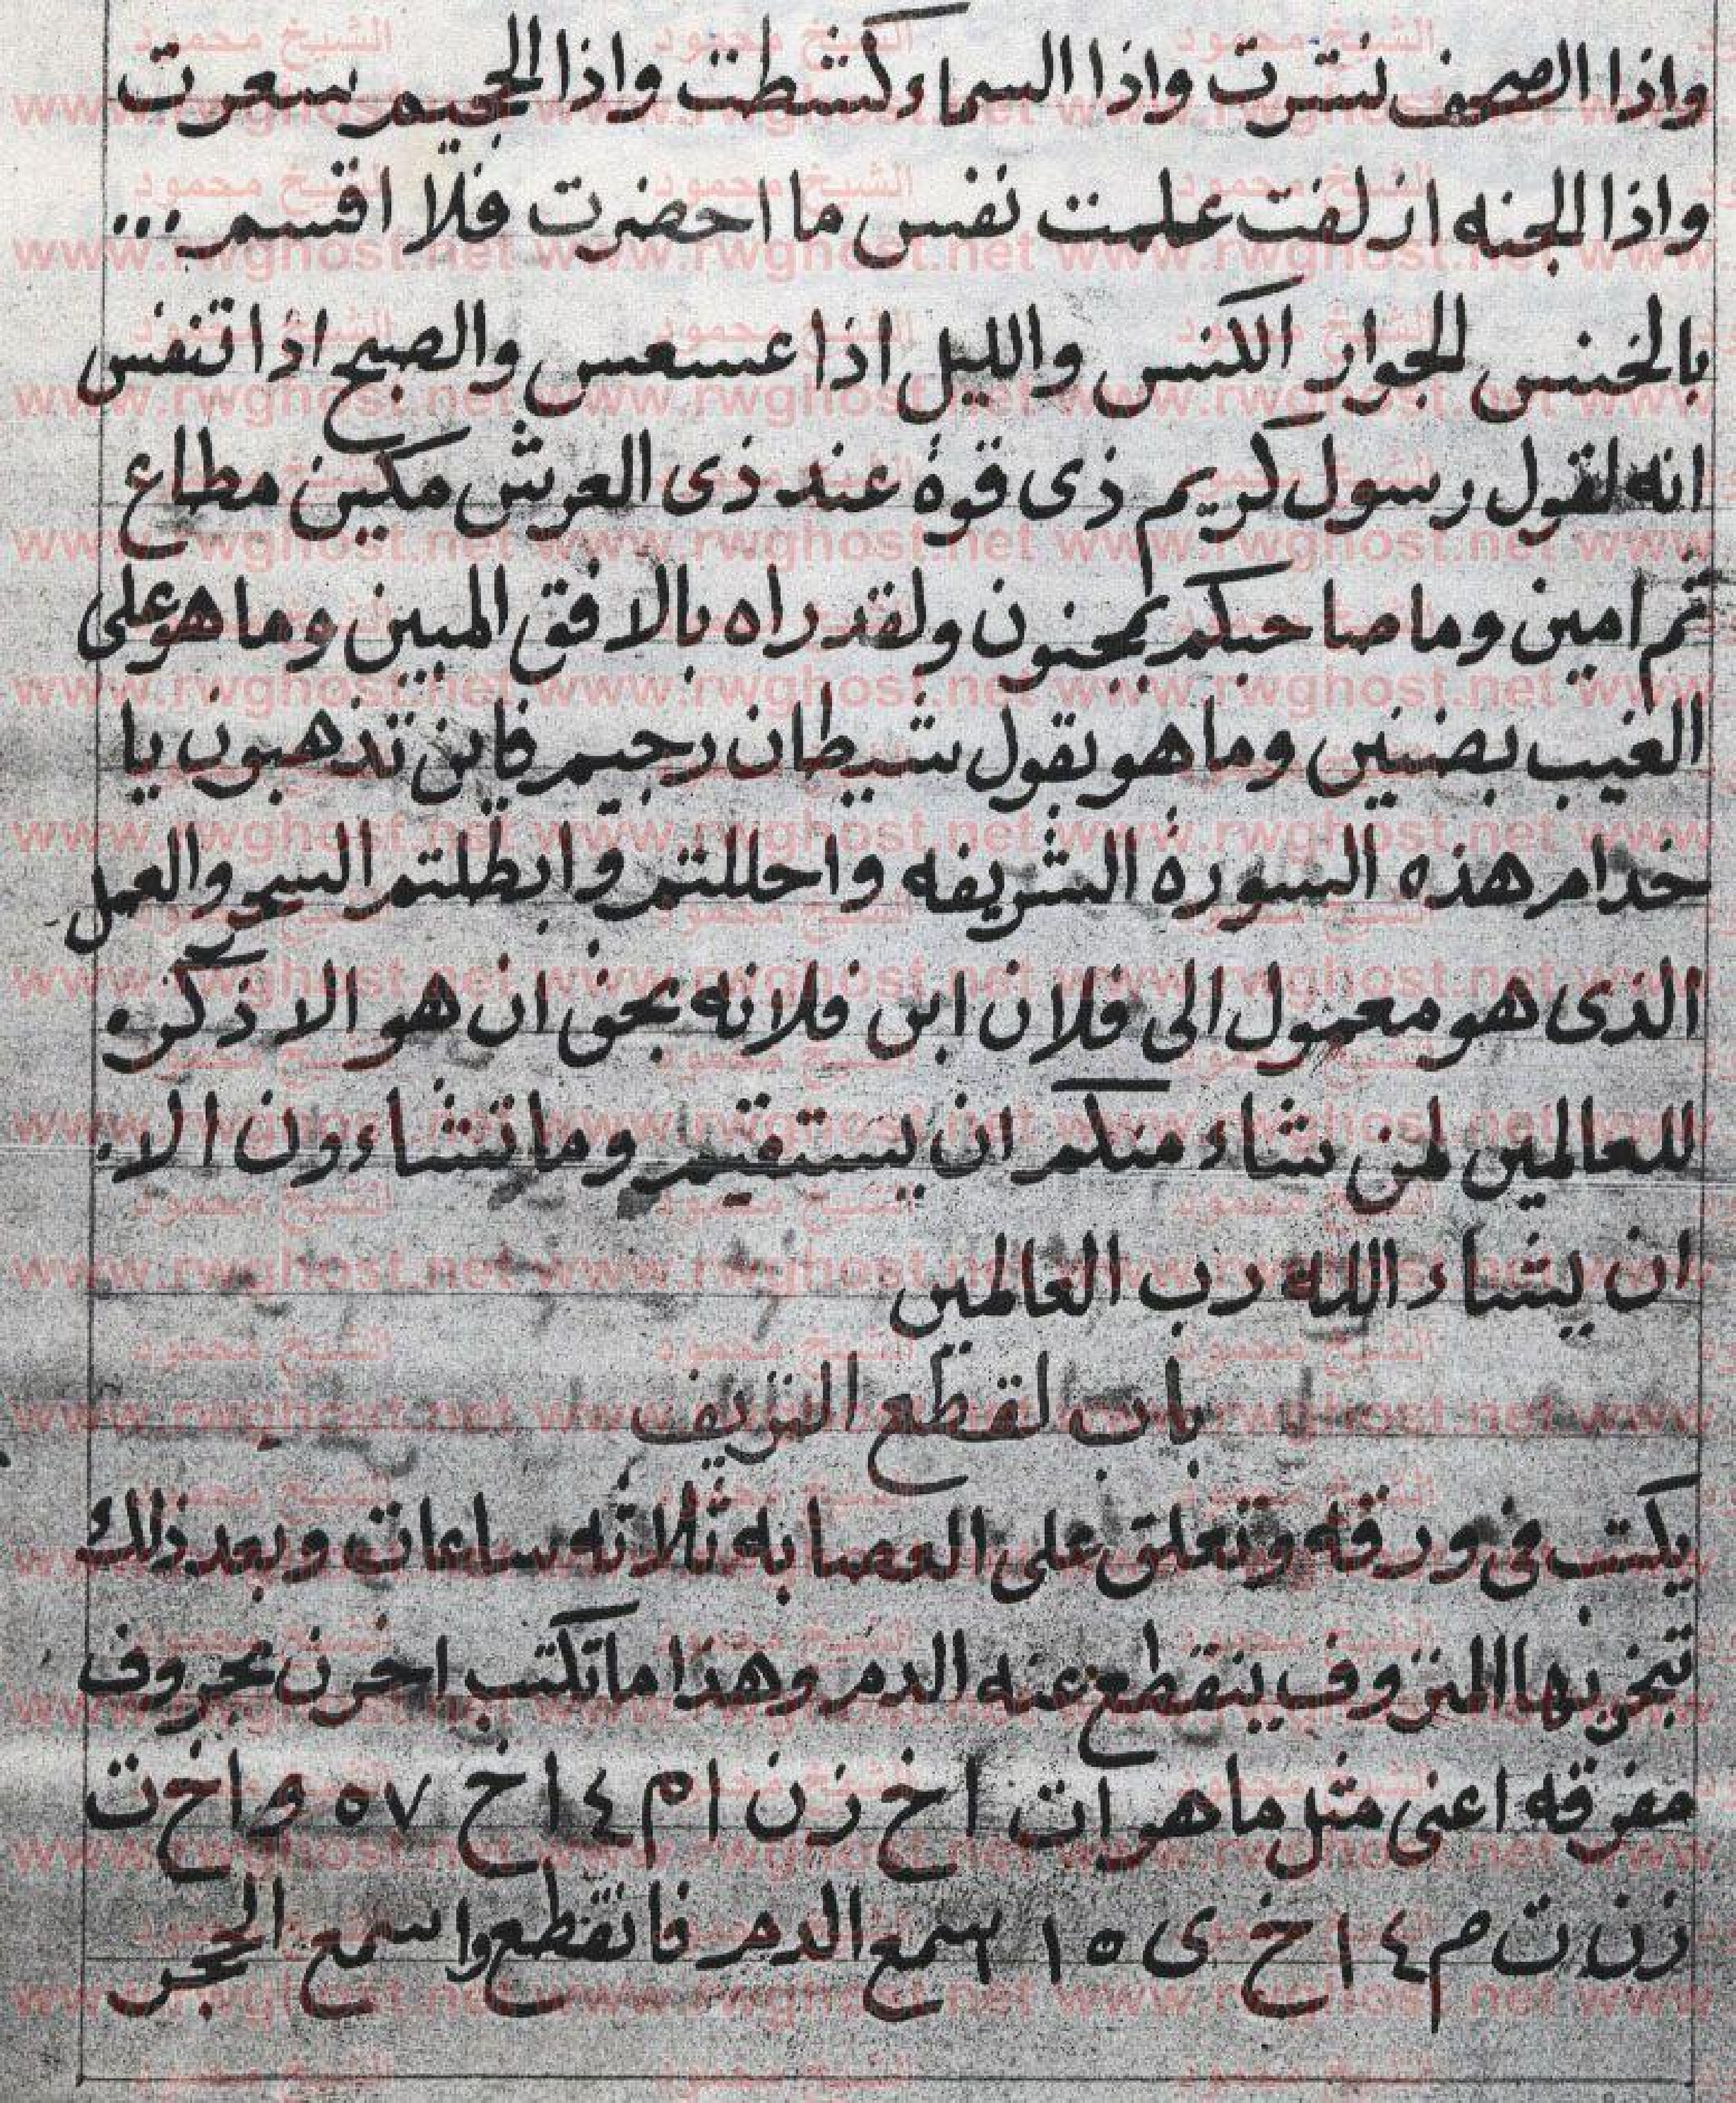 واذا الصحف نشرت واذا السماء كشطت واذا الجحيم سعرت
واذا الجنه ازلفت علمت نفس ما احضرت فلا اقسم ...
بالخنس الجوار الكنس والليل اذا عسعس والصبح اذا تنفس
انه لقول رسول كريم ذى قوة عند ذى العرش مكين مطاع
ثم امين وما صاحبكم بمجنون ولقد راه بالافق المبين وما هو على
الغيب بضنين وما هو بقول شيطان رجيم فاين تذهبون يا
خدام هذه السورة الشريفه واحللتم وابطلتم السحر والعمل
الذى هو معمول الى فلان ابن فلانه بحق ان هو الا ذكر
للعالمين لمن شاء منكم ان يستقيم وما تشاءون الا
ان يشاء الله رب العالمين
باب لقطع النزيف
يكتب فى ورقه وتعلق على العصابه ثلاثه ساعات وبعد ذلك
تبخر بها المنزوف ينقطع عنه الدم وهذا ما تكتب اخرن بحروف
مفرقه اعنى مثل ما هو ات ا خ ز ن ا م ٤ ا خ ٥٧ و ا خ ت
ز ن ت م ٤ ا خ ى ١٥ اسمع الدم فانقطع واسمع الحجر
الشيخ محمود
www.rwghost.net